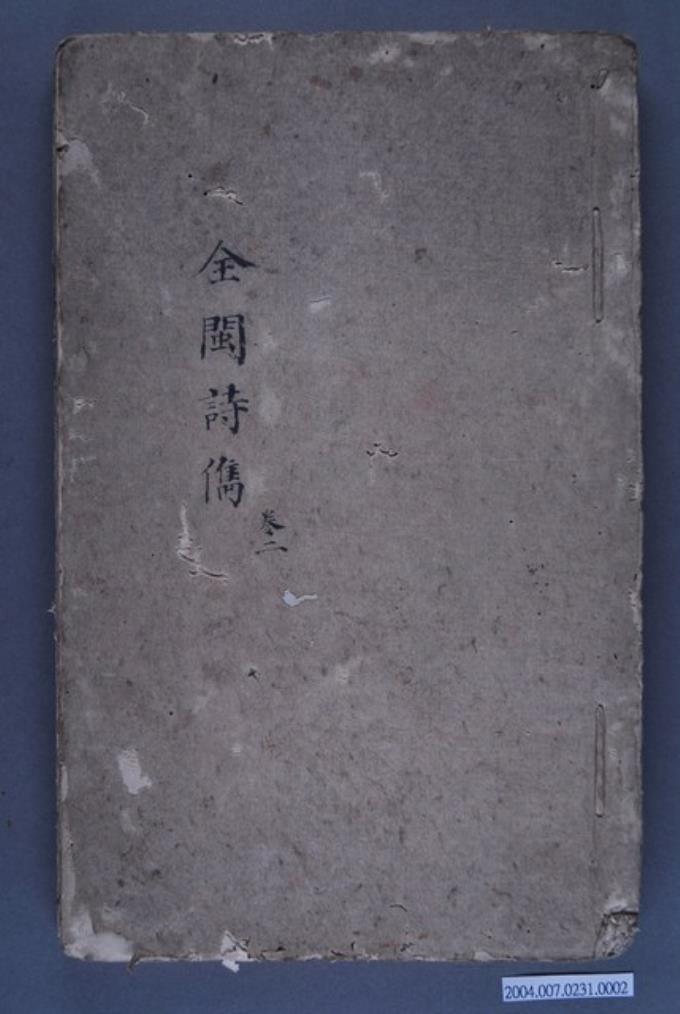 全閩詩儁
卷二
2004.007.0231.0002